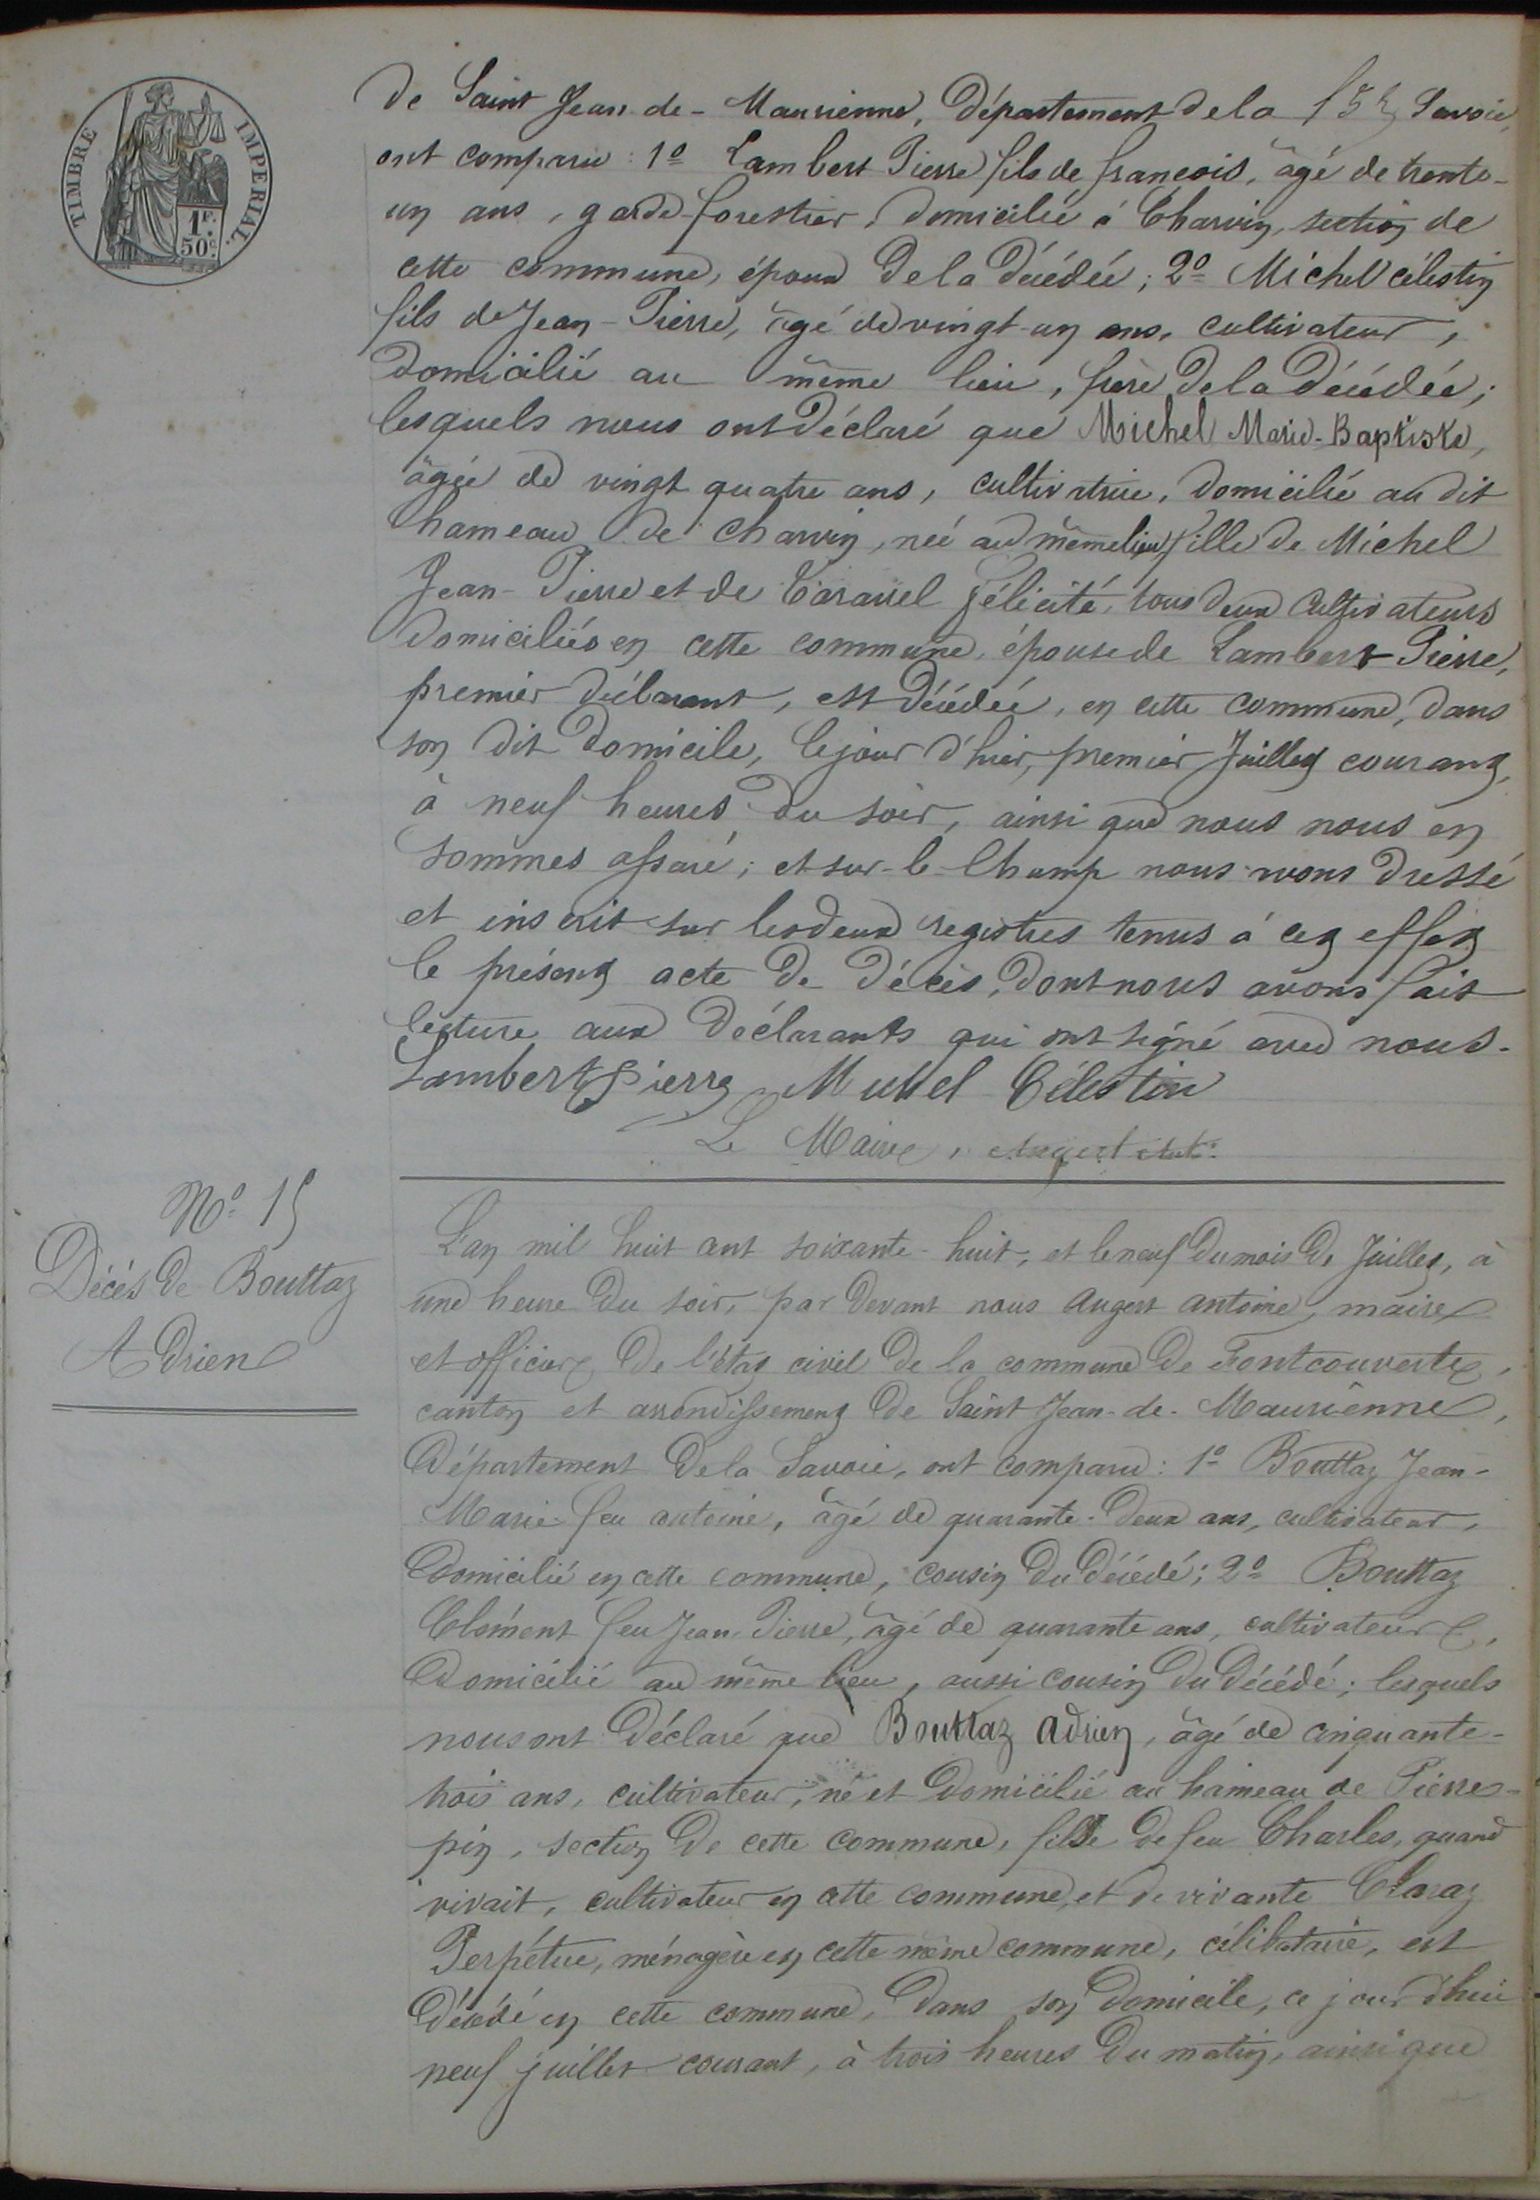 TIMBRE IMPERIAL.
1F.
50C.
de Saint Jean-de-Maurienne, Département de la Savoie,
ont comparu : 1º Lambert Pierre fils de françois, âgé de trente-
un ans, garde-forestier, domicilié à Charvin, section de
cette commune, époux de la Décédée ; 2º Michel célestin
fils de Jean-Pierre, âgé de vingt-un ans, cultivateur,
domicilié au même lieu, frère de la Décédée ;
lesquels nous ont Déclaré que Michel Marie-Baptiste,
âgée de vingt quatre ans, cultivatrice, domicilié au dit
hameau de Charvin, née au même lieu, fille de Michel
Jean-Pierre et de Cararrel félicité, tous deux cultivateurs
domiciliés en cette commune, épouse de Lambert Pierre,
premier déclarant, est Décédée, en cette commune, dans
son dit domicile, le jour d'hier, premier Juillet courant,
à neuf heures du soir, ainsi que nous nous en
sommes assuré ; et sur-le-Champ nous avons dressé
et inscrit sur les deux registres tenus à cet effet
le présent acte de décès, dont nous avons fait
lecture aux Déclarants qui ont signé avec nous.
Lambert Pierre Michel Célestin
Le Maire, Augert Ant.
Nº 15
Décès de Bouttaz
Adrien
L'an mil huit cent soixante-huit, et le neuf du mois de Juillet, à
une heure du soir, par devant nous Augert antoine, maire
et officier de l'état civil de la commune de Fontcouverte,
canton et arrondissement de Saint Jean-de-Maurienne,
Département de la Savoie, ont comparu : 1º Bouttaz Jean-
Marie feu antoine, âgé de quarante-deux ans, cultivateur,
Domicilié en cette commune, cousin du Décédé ; 2º Bouttaz
Clément feu Jean Pierre, âgé de quarante ans, cultivateur,
Domicilié au même lieu, aussi cousin du Décédé ; lesquels
nous ont Déclaré que Bouttaz Adrien, âgé de cinquante-
trois ans, cultivateur, né et domicilié au hameau de Pierre-
pin, section de cette commune, fils de feu Charles, quand
vivait, cultivateur en cette commune, et de vivante Claraz
Perpétue, ménagère en cette même commune, célibataire, est
Décédé en cette commune, dans son domicile, ce jour d'hui
neuf juillet courant, à trois heures du matin, ainsi que